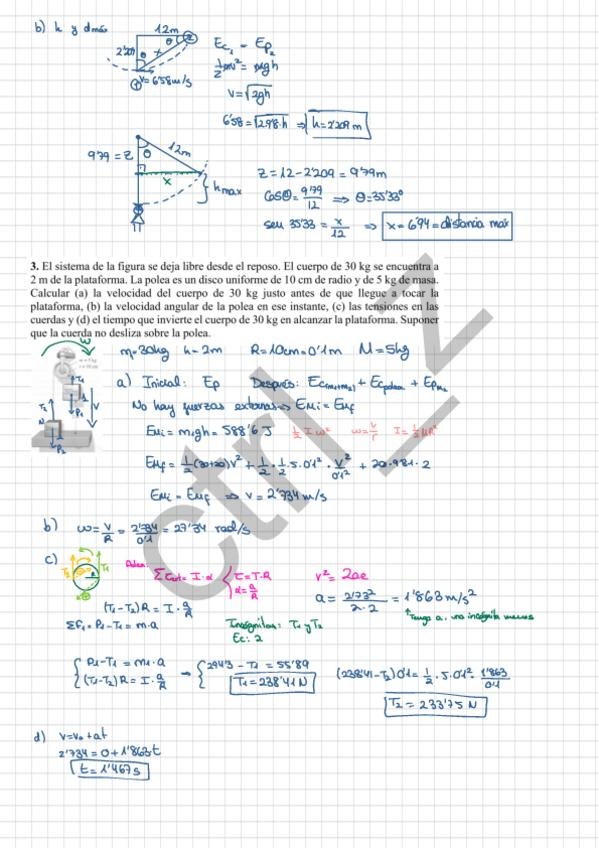 b) h y dmáx
12m
θ
2'209
x
v=6'58m/s
Ec₁ = Ep₂
½mv² = mgh
v=√2gh
6'58=√2·9'8·h ⇒ h=2'209 m
9'79=z
θ
12m
x
hmax
z = 12-2'209 = 9'79m
cosθ= 9'79/12 ⇒ θ=35'33°
sen 35'33 = x/12 ⇒ x=6'94=distancia max
3. El sistema de la figura se deja libre desde el reposo. El cuerpo de 30 kg se encuentra a
2 m de la plataforma. La polea es un disco uniforme de 10 cm de radio y de 5 kg de masa.
Calcular (a) la velocidad del cuerpo de 30 kg justo antes de que llegue a tocar la
plataforma, (b) la velocidad angular de la polea en ese instante, (c) las tensiones en las
cuerdas y (d) el tiempo que invierte el cuerpo de 30 kg en alcanzar la plataforma. Suponer
que la cuerda no desliza sobre la polea.
m=30kg h=2m R=10cm=0'1m M=5kg
a) Inicial: Ep Después: Ec(m₁+m₂) + Ecpolea + Epm₂
No hay fuerzas externas ⇒ Emi = Emf
Emi = m₁gh = 588'6 J ½Iω² ω=v/r I=½MR²
Emf = ½(30+20)v² + ½·½·5·0'1²·v²/0'1² + 20·9'81·2
Emi = Emf ⇒ v = 2'734 m/s
b) ω = v/R = 2'734/0'1 = 27'34 rad/s
c)
T₂
T₁
Polea:
Στext = I·α
τ=T·R
α=a/R
v² = 2ae
(T₁-T₂)R = I·a/R
a = 2'73²/2·2 = 1'863 m/s²
ΣF₁ = P₁-T₁ = m·a
Incógnitas: T₁ y T₂
Ec: 2
Tengo a, una incógnita menos
P₁-T₁ = m₁·a → 294'3 - T₁ = 55'89
(T₁-T₂)R = I·a/R
T₁=238'41N
(238'41-T₂)0'1 = ½·5·0'1²·1'863/0'1
T₂=233'75 N
d) v=v₀+at
2'734=0+1'863·t
t=1'467s
ctrl_z